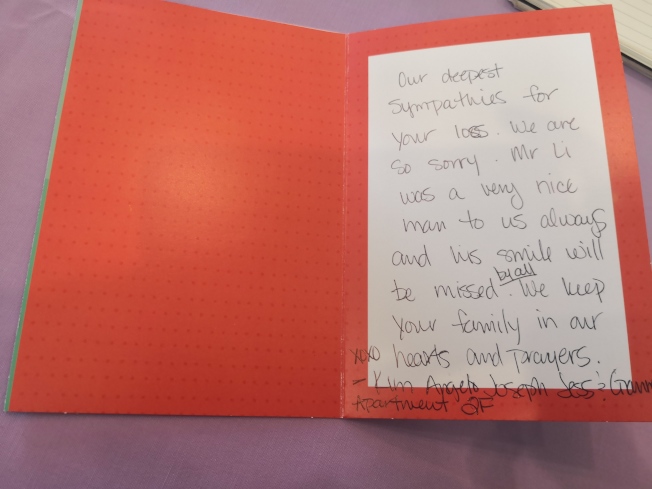 Our deepest
sympathies for
your loss. We are
so sorry. Mr Li
was a very nice
man to us always
and his smile will
be missed by all. We keep
your family in our
hearts and prayers.
xoxo
- Kim Angelo Joseph Jess :
Apartment